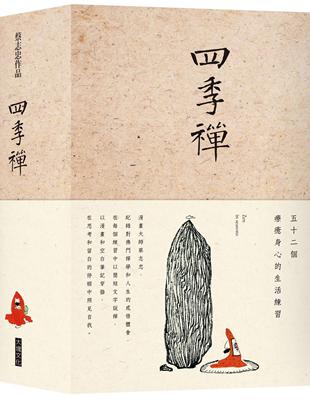 四季禪
蔡志忠作品
四季禪
五十二個
療癒身心的生活練習
Zen
漫畫大師蔡志忠，
紀錄對佛門禪學和人生的感悟體會，
在每個練習中以簡短文字說禪，
以漫畫和空白筆記穿插，
在思考和留白的停頓中照見自我。
大塊文化